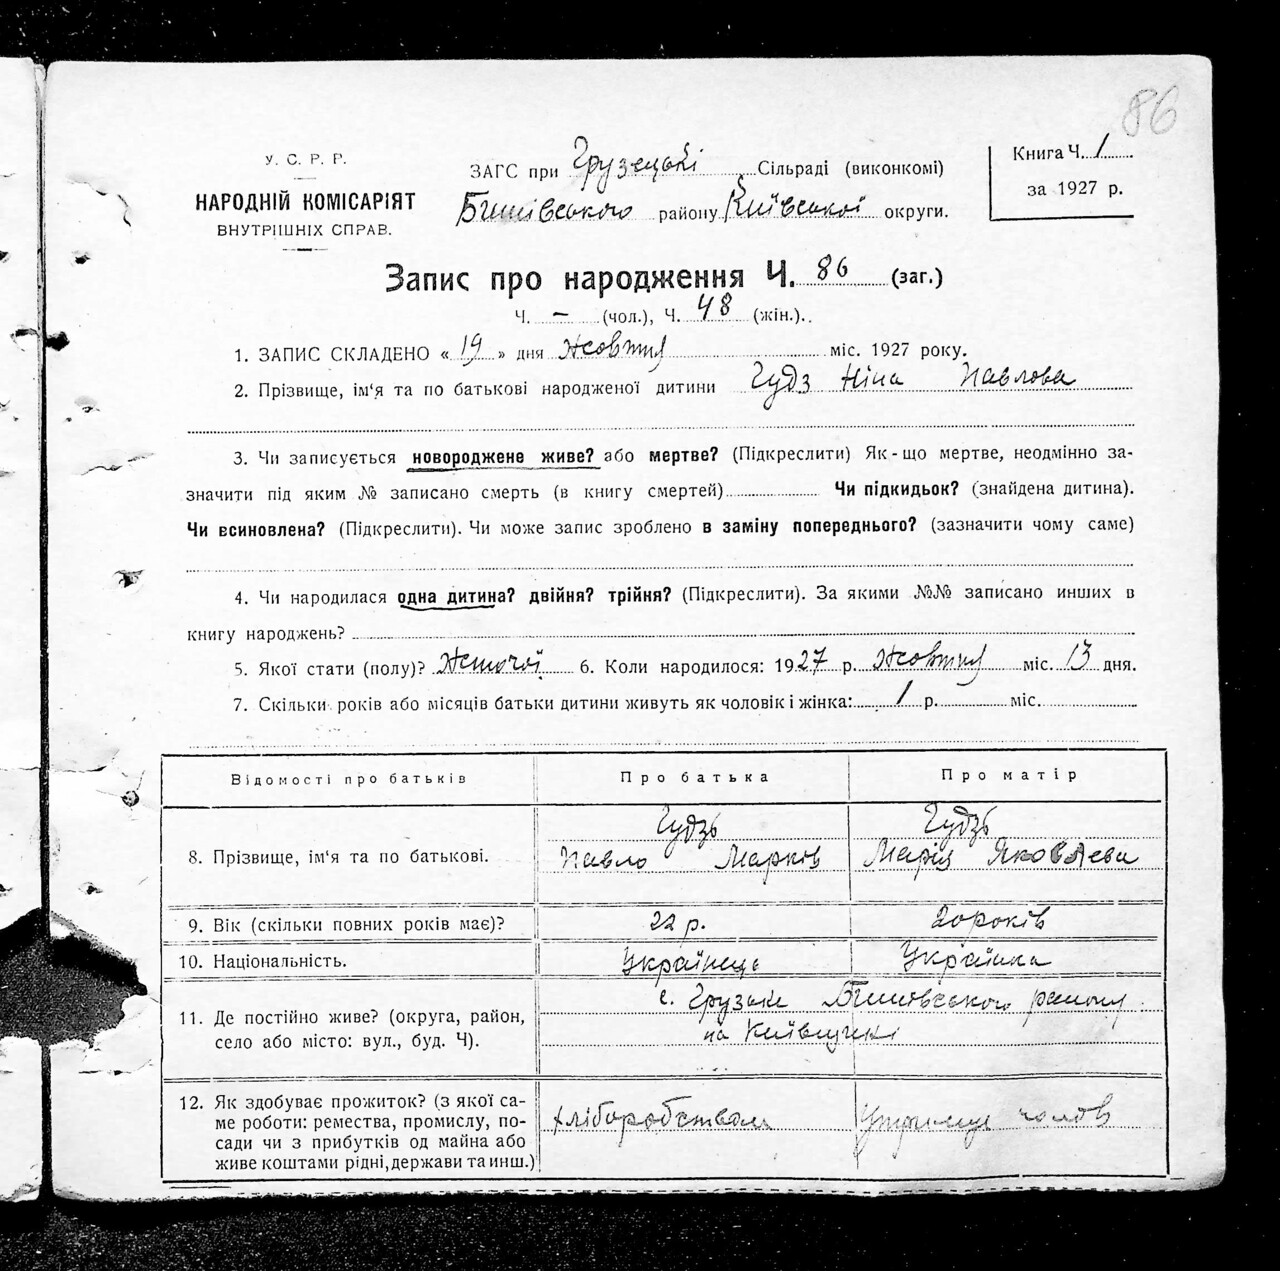 86
У. С. Р. Р.
НАРОДНІЙ КОМІСАРІЯТ
ВНУТРІШНІХ СПРАВ.
ЗАГС при Грузецькі Сільраді (виконкомі)
Бишівського району Київської округи.
Книга Ч. 1
за 1927 р.
Запис про народження Ч. 86 (заг.)
Ч. — (чол.), Ч. 48 (жін.).
1. ЗАПИС СКЛАДЕНО « 19 » дня Жовтня міс. 1927 року.
2. Прізвище, ім‘я та по батькові народженої дитини Гудз Ніна Павлова
3. Чи записується новороджене живе? або мертве? (Підкреслити) Як-що мертве, неодмінно за-
значити під яким № записано смерть (в книгу смертей) Чи підкидьок? (знайдена дитина).
Чи всиновлена? (Підкреслити). Чи може запис зроблено в заміну попереднього? (зазначити чому саме)
4. Чи народилася одна дитина? двійня? трійня? (Підкреслити). За якими №№ записано инших в
книгу народжень?
5. Якої стати (полу)? Жіночої 6. Коли народилося: 1927 р. Жовтня міс. 13 дня.
7. Скільки років або місяців батьки дитини живуть як чоловік і жінка: 1 р. міс.
Відомості про батьків Про батька Про матір
8. Прізвище, ім‘я та по батькові. Гудзь Гудзь
Павло Марків Марія Яковлева
9. Вік (скільки повних років має)? 22 р. 20 років
10. Національність. Українець Українка
11. Де постійно живе? (округа, район,
село або місто: вул., буд. Ч).
с. Грузьке Бишівського району
на Київщині
12. Як здобуває прожиток? (з якої са-
ме роботи: ремества, промислу, по-
сади чи з прибутків од майна або
живе коштами рідні, держави та инш.)
хліборобством Утримує чолов